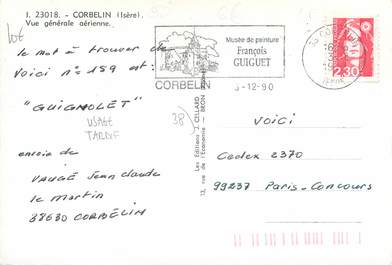 I. 23018. - CORBELIN (Isère).
Vue générale aérienne.
lot
le mot à trouver de
voici n° 159 est :
"GUIGNOLET"
USAGE
TARDIF
38)
envoie de
VAUGÉ Jean claude
le Martin
38630 CORBELIN
Musée de peinture
François
GUIGUET
CORBELIN
3-12-90
2,30
ISERE
Les Editions J. CELLARD
13, rue de l'Economie BRON
VOICI
Cedex 2370
99237 Paris-Concours